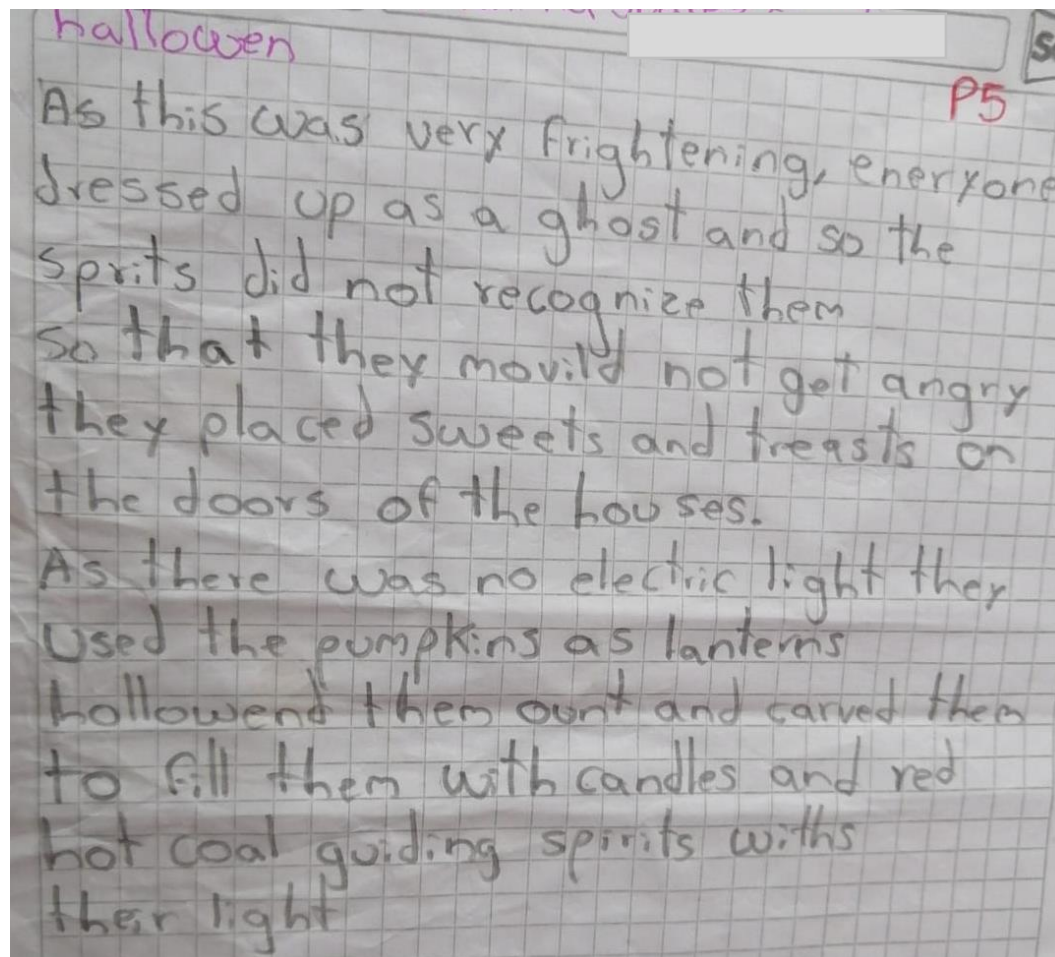 hallowen
P5
As this was very frightening, eneryone
dressed up as a ghost and so the
sprits did not recognize them
so that they movild not get angry
they placed sweets and treasts on
the doors of the houses.
As there was no electric light they
used the pumpkins as lanterns
hollowend them ount and carved them
to fill them with candles and red
hot coal guiding spirits withs
their light